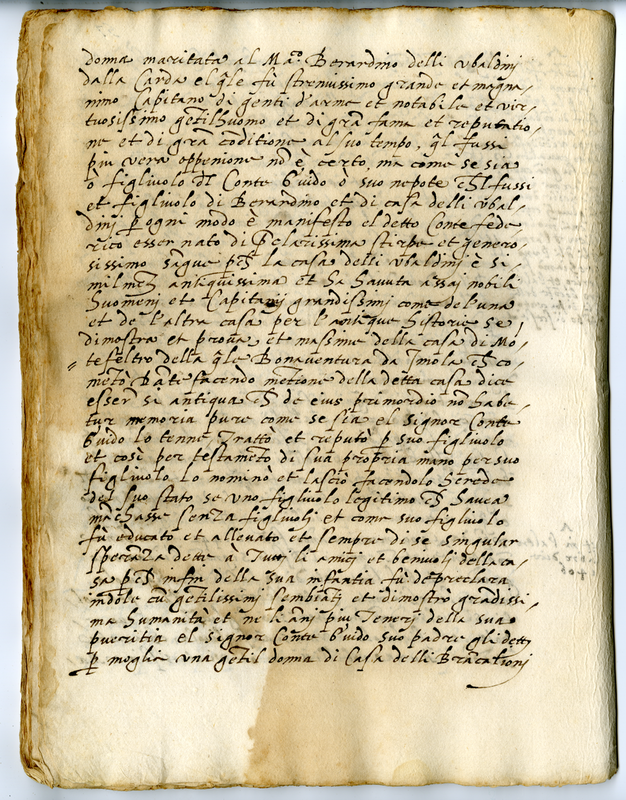 donna maritata al Ma.co Berardino delli Vbaldinj
dalla Carda el q̃le fù strenuissimo grande et magna,
nimo Capitano di genti d'arme et notabile et vir,
tuosissimo gẽtil'huomo et di grã fama et reputatio,
ne et di grã cõditione al suo tempo, q̃l fusse
più vera oppenione nõ è certo, ma come se sia
ò figliuolo dl Conte Guido ò suo nepote ch̃l fussi
et figliuolo di Berardino et di casa delli Vbal,
dinj p̱ ogni modo è manifesto el detto Conte fede
rico esser nato di p̃clarissima stirpe et genero,
sissimo sãgue p̃ch̃ la casa delli Vbaldinj è si,
milmẽ antiquissima et ha hauuta assaj nobili
huomenj et Capitanij grandissimi come de l'una
et de l'altra casa per l'antique historie se
dimostra et proua, et massime della casa di Mõ,
tefeltro della q̃le Bonauentura da Jmola ch̃ co,
mẽtò Dãte facendo mẽtione della detta casa dice
esser sì antiqua ch̃ de eius primordio nõ habe,
tur memoria pure come se sia el signor Conte
Guido lo tenne Trattò et reputò p̱ suo figliuolo
et così per testamẽto di sua propria mano per suo
figliuolo lo nominò et lasciò facendolo herede
del suo stato se vno figliuolo legitimo ch̃ hauea
mãchasse senza figliuoli et come suo figliuolo
fù educato et alleuato et sempre di se singular
sperãza dette à Tutti li amici et beniuoli della ca,
sa p̃ch̃ infin della sua infantia fù de preclara
indole cũ gẽtilissimi sembiãtj et dimostrò grãdissi,
ma humanità et ne li ãni più Tenerj della sua
pueritia el signor Cõnte Guido suo padre gli dettj
p̱ moglie vna gẽtil donna di Casa delli Brãcalionj